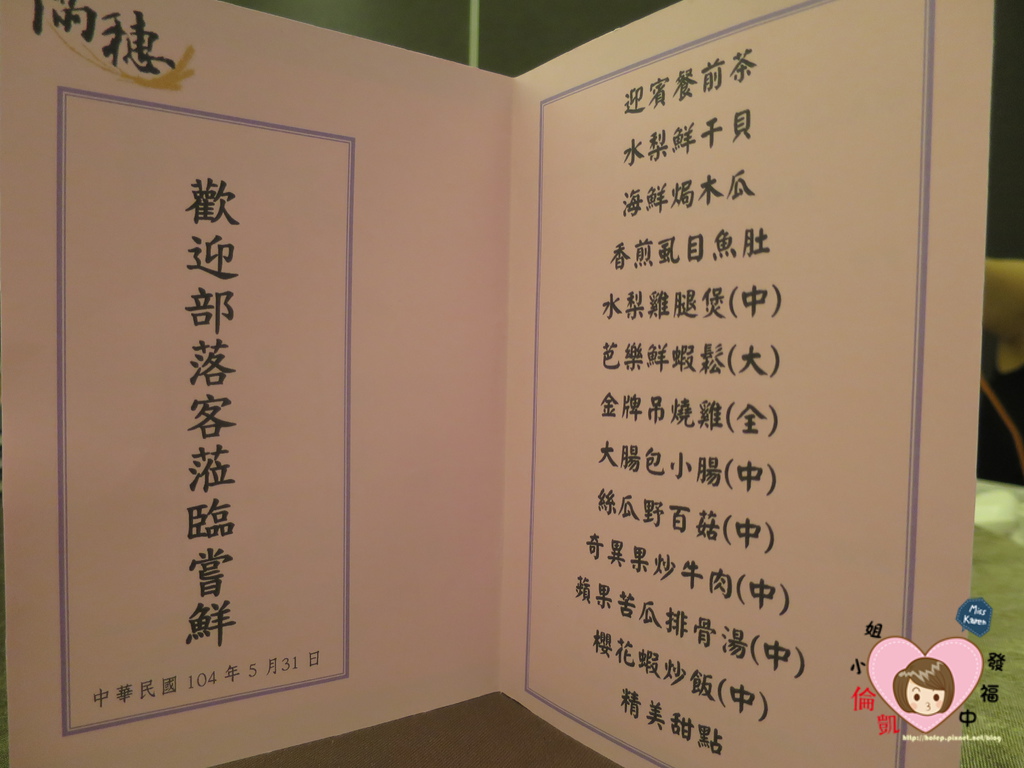 滿穗
歡迎部落客蒞臨嘗鮮
中華民國 104 年 5 月 31 日
迎賓餐前茶
水梨鮮干貝
海鮮焗木瓜
香煎虱目魚肚
水梨雞腿煲(中)
芭樂鮮蝦鬆(大)
金牌吊燒雞(全)
大腸包小腸(中)
絲瓜野百菇(中)
奇異果炒牛肉(中)
蘋果苦瓜排骨湯(中)
櫻花蝦炒飯(中)
精美甜點
Miss Karen
小姐
倫凱
發福中
http://hafep.pixnet.net/blog